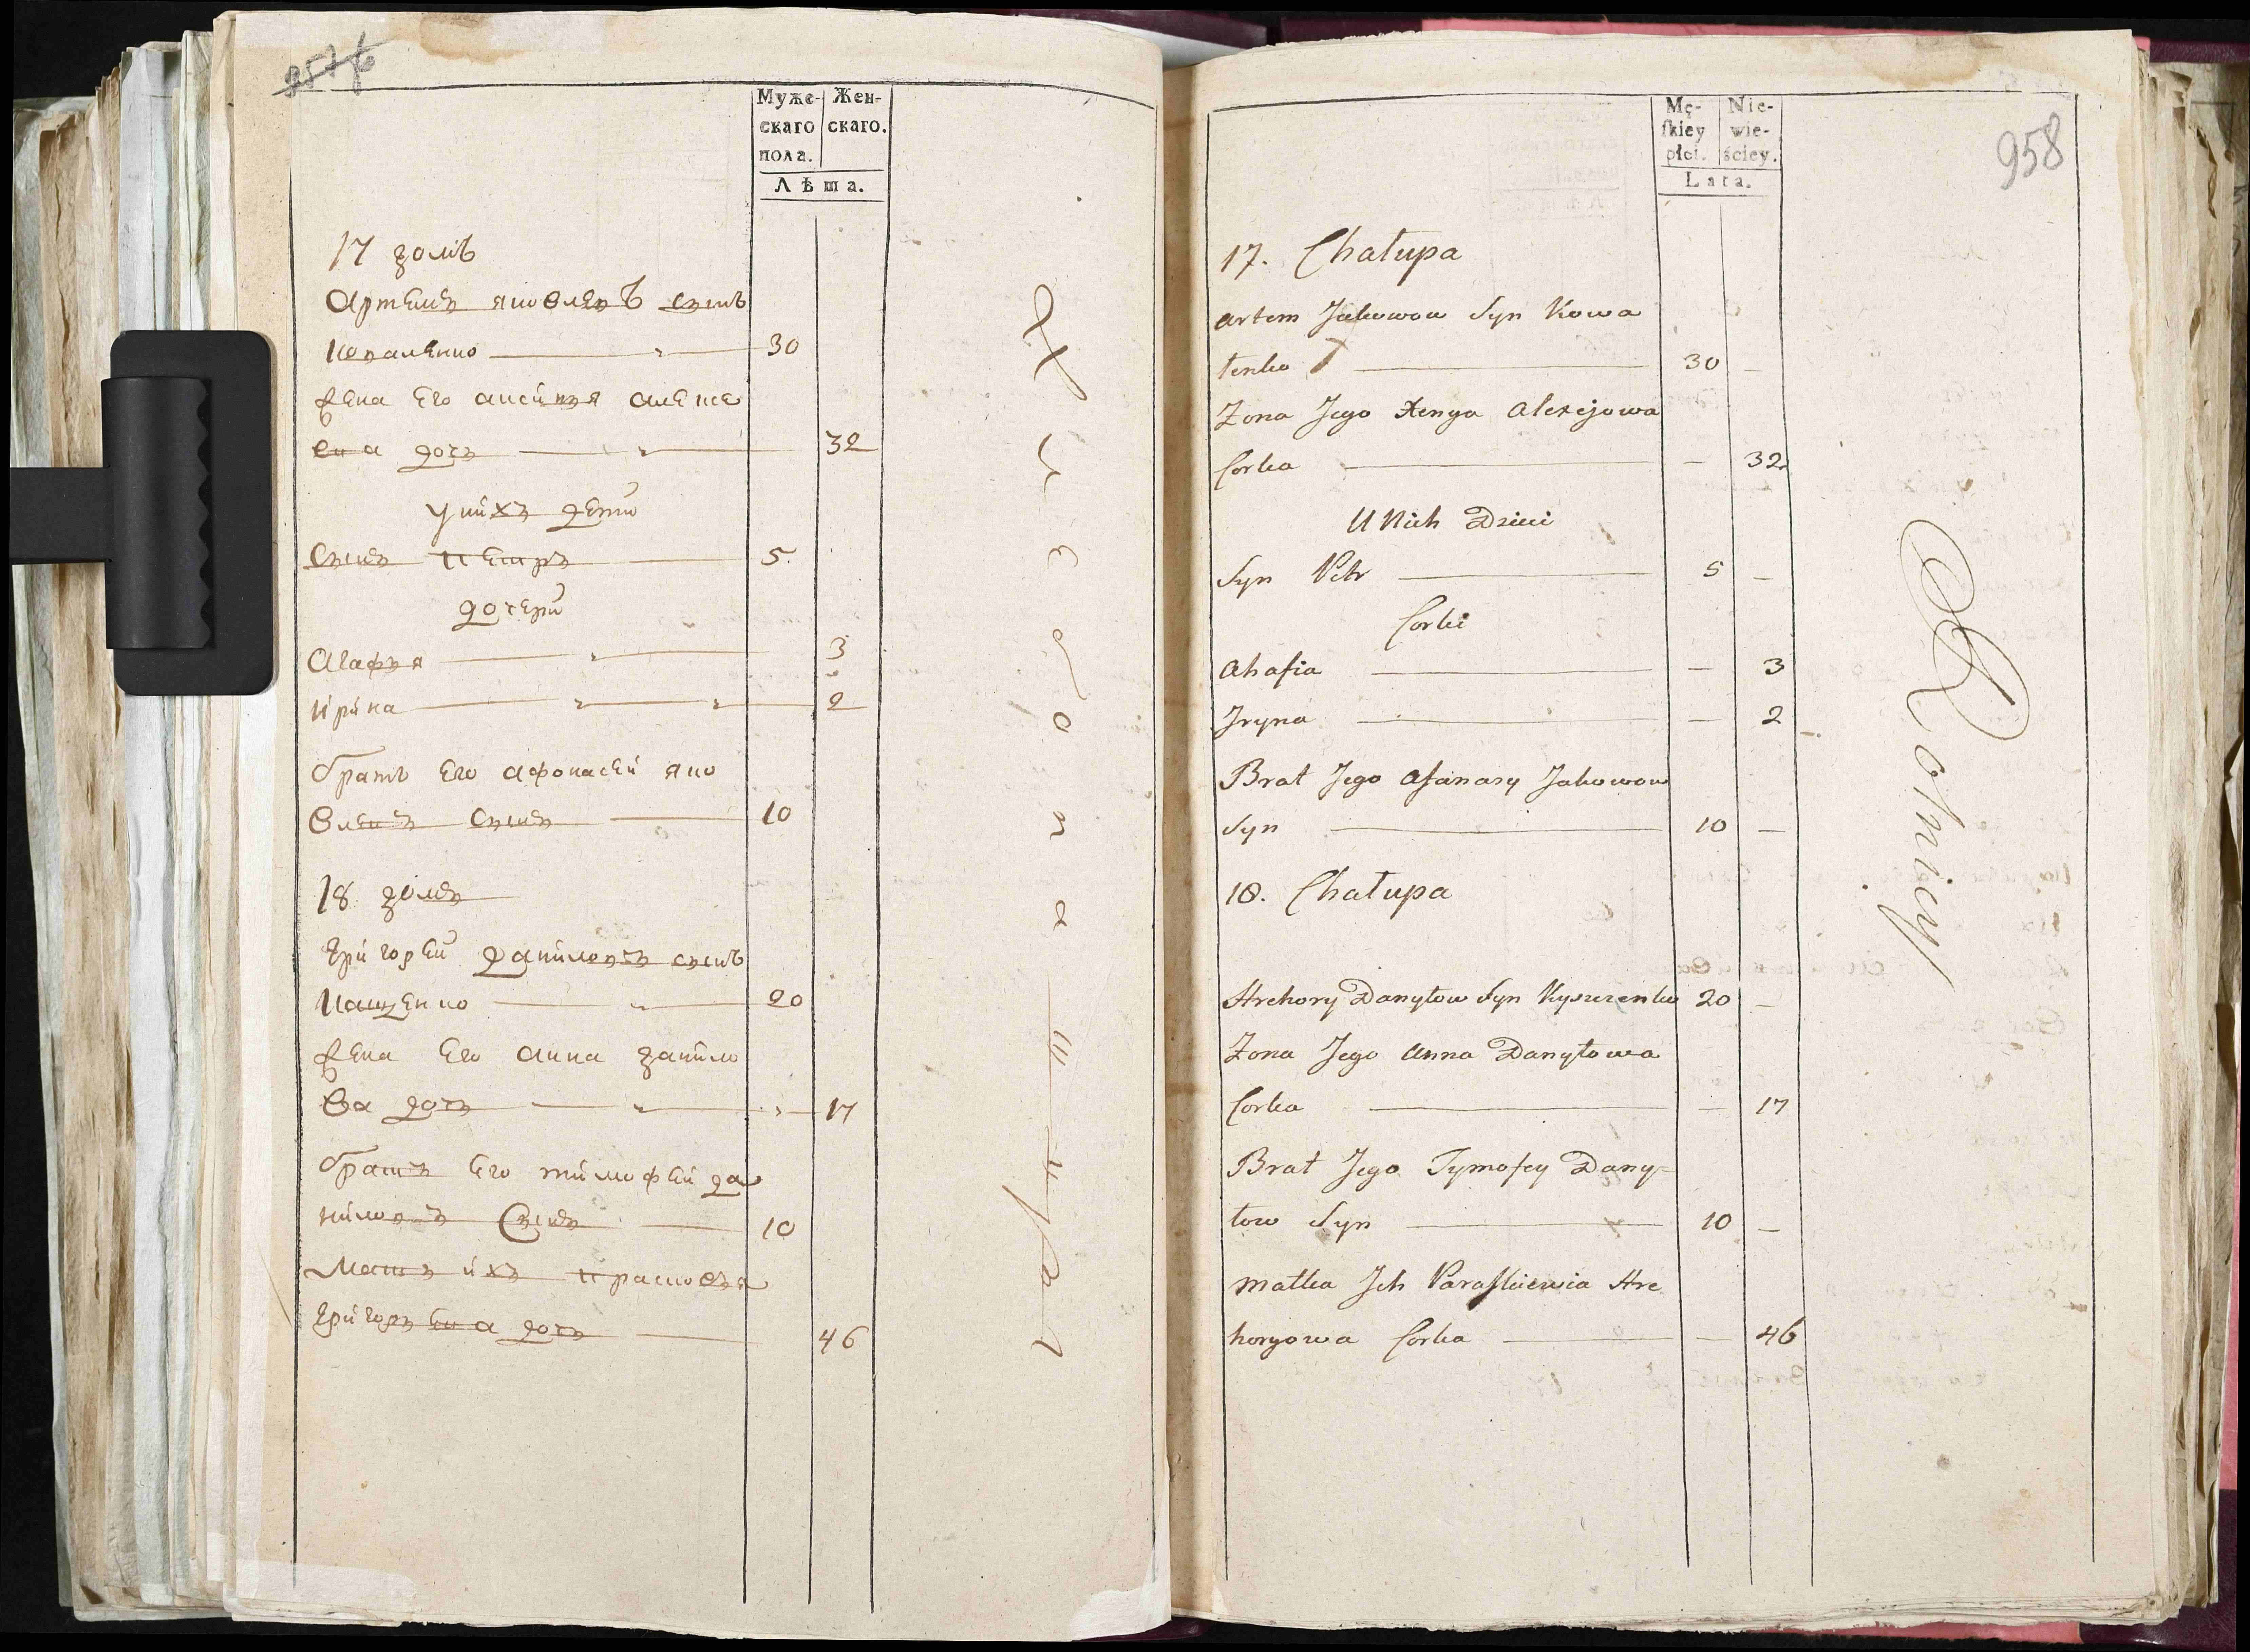 Муже-
скаго
пола.
Жен-
скаго.
Лѣта.
17 домъ
Артемъ яковлевъ сынъ
коваленко 30
жена его аксинья алексе
ева дочь 32
у нихъ дети
Сынъ петръ 5.
дочери
Агафья 3
ирина 2
братъ его афонасей яко
влевъ сынъ 10
18 домъ
григорей даниловъ сынъ
20
жена его анна данило
ва дочь 17
братъ его тимофей да
ниловъ Сынъ 10
Мать ихъ прасковья
григорьева дочь 46
958
Mę-
ſkiey
płci.
Nie-
wie-
ściey.
Lata.
17. Chałupa
Artem Jakowow Syn Kowa
lenko 30 –
Żona Jego Xenya Alexejowa
Corka – 32
U Nich Dzieci
Syn Petr 5 –
Corki
Ahafia – 3
Jryna – 2
Brat Jego Afanasy Jakowow
Syn 10 –
18. Chałupa
Hrehory Danyłow Syn 20 –
Żona Jego Anna Danyłowa
Corka – 17
Brat Jego Tymofey Dany=
łow Syn 10 –
Matka Jch Paraſkiewia Hre
horyowa Corka – 46
Rolnicy